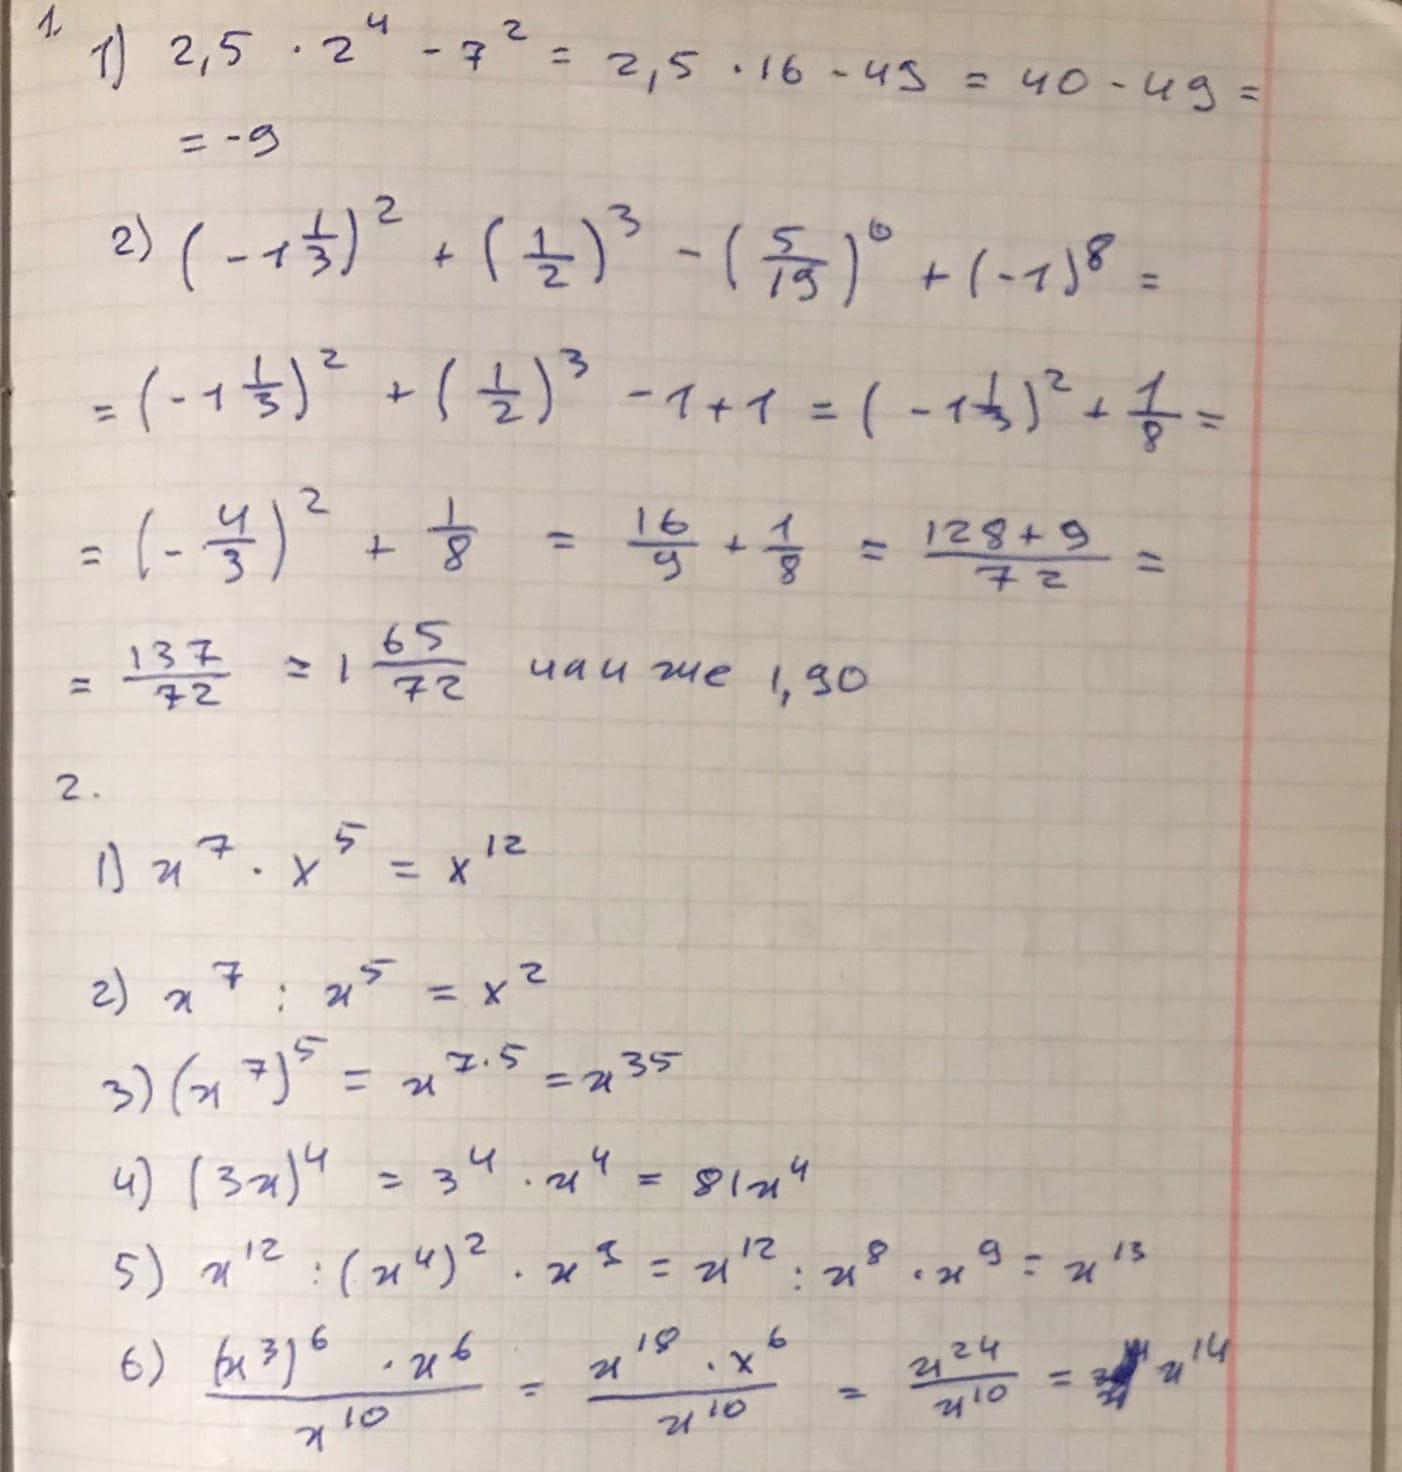 1.
1) 2,5 · 2⁴ - 7² = 2,5 · 16 - 49 = 40 - 49 =
= -9
2) (-1 1/3)² + (1/2)³ - (5/19)⁰ + (-1)⁸ =
= (-1 1/3)² + (1/2)³ - 1 + 1 = (-1 1/3)² + 1/8 =
= (-4/3)² + 1/8 = 16/9 + 1/8 = (128+9)/72 =
= 137/72 = 1 65/72 же 1,90
2.
1) x⁷ · x⁵ = x¹²
2) x⁷ : x⁵ = x²
3) (x⁷)⁵ = x⁷·⁵ = x³⁵
4) (3x)⁴ = 3⁴ · x⁴ = 81x⁴
5) x¹² : (x⁴)² · x⁹ = x¹² : x⁸ · x⁹ = x¹³
6) ((x³)⁶ · x⁶)/x¹⁰ = (x¹⁸ · x⁶)/x¹⁰ = x²⁴/x¹⁰ = x¹⁴